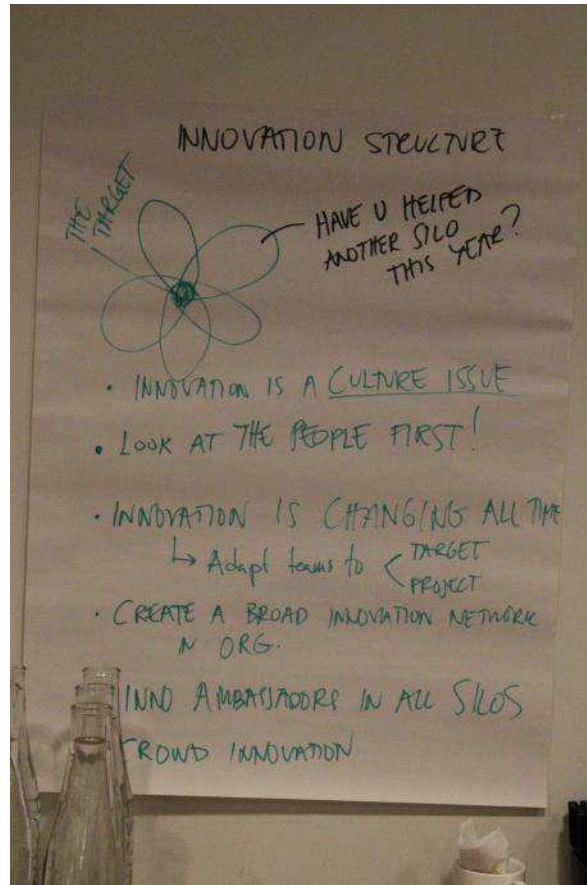 INNOVATION STRUCTURE
THE
TARGET
HAVE U HELPED
ANOTHER SILO
THIS YEAR?
• INNOVATION IS A CULTURE ISSUE
• LOOK AT THE PEOPLE FIRST!
• INNOVATION IS CHANGING ALL TIME
↳ Adapt teams to < TARGET
PROJECT
• CREATE A BROAD INNOVATION NETWORK
N ORG.
INNO AMBASSADORS IN ALL SILOS
CROWD INNOVATION